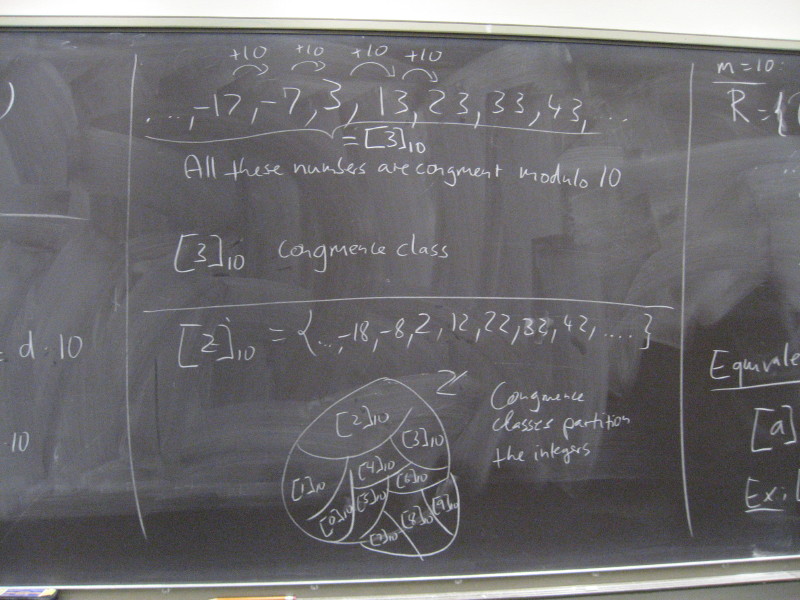 )
d · 10
· 10
+10 +10 +10 +10
..., -17, -7, 3, 13, 23, 33, 43, ...
= [3]10
All these numbers are congruent modulo 10
[3]10 Congruence class
[2]10 = {..., -18, -8, 2, 12, 22, 32, 42, ....}
Z
[2]10
[3]10
[4]10
[1]10
[6]10
[5]10
[0]10
[9]10
[8]10
[7]10
Congruence
classes partition
the integers
m = 10:
R = {
..
Equivale
[a]
Ex: [